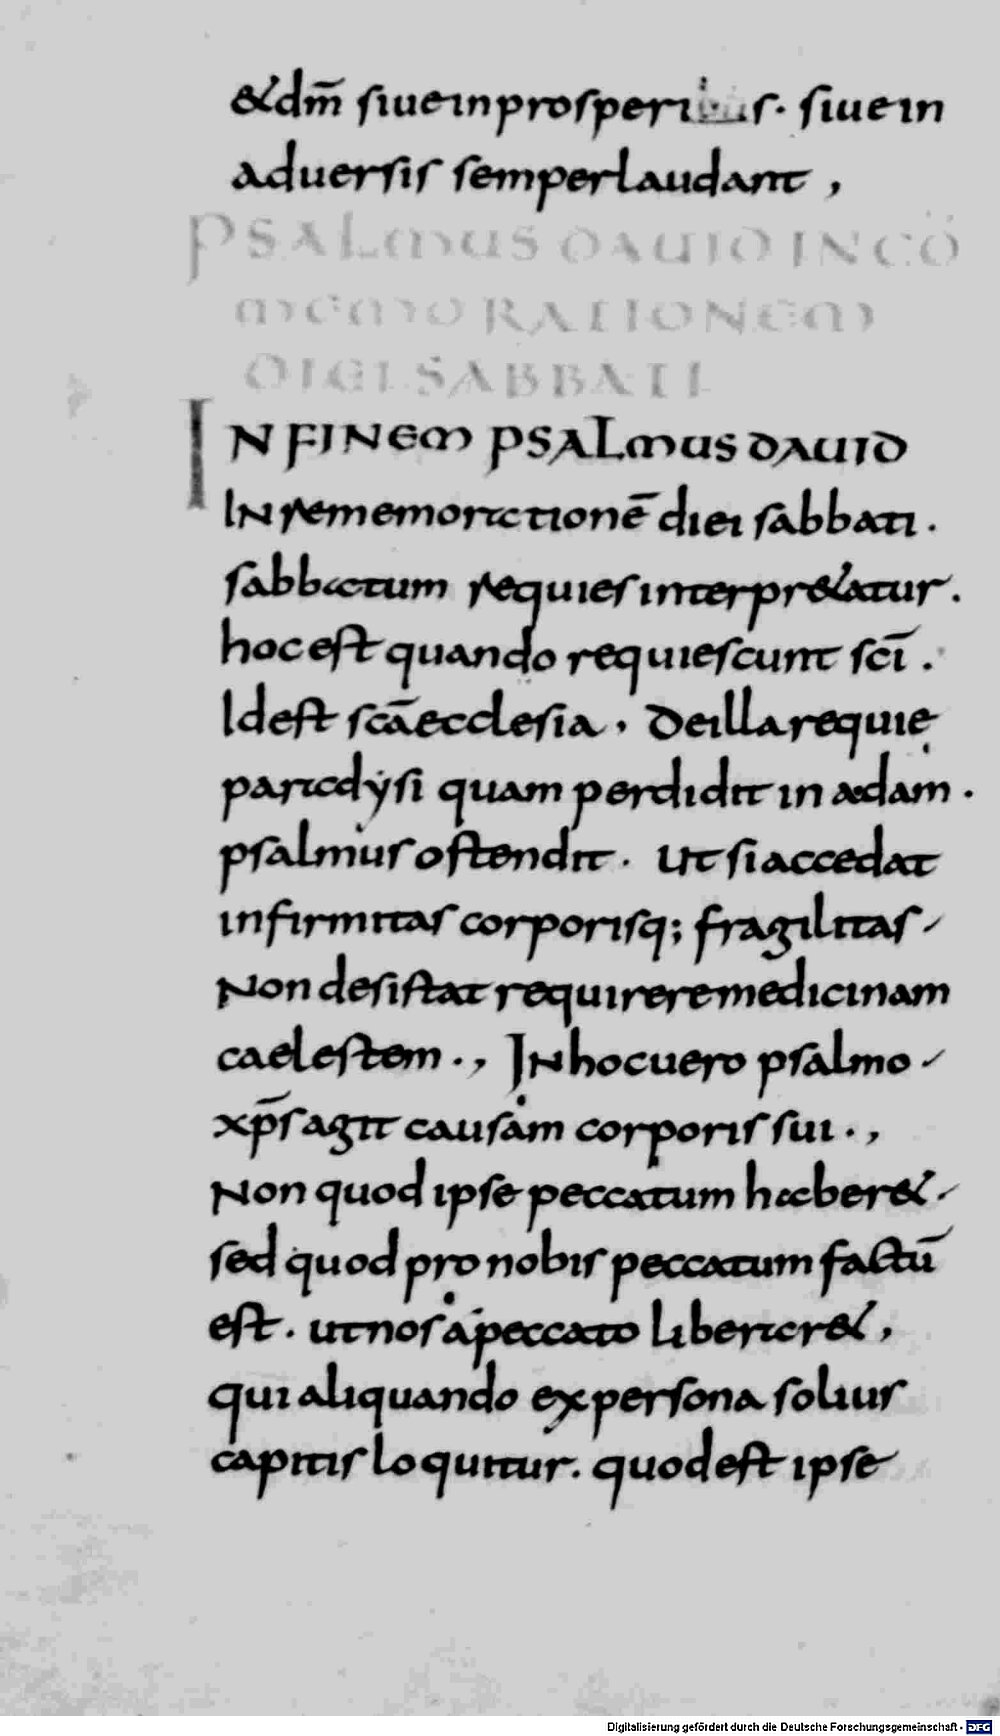 & dm̄ siue in prosperis. siue in
aduersis semper laudant,
PSALMUS DAUID IN CŌ
MEMORATIONEM
DIEI SABBATI
IN FINEM PSALMUS DAUID
In rememorationē diei sabbati.
sabbatum requies interpr&atur.
hoc est quando requiescunt scī.
Id est scā ecclesia, De illa requie
paradẏsi quam perdidit in adam.
psalmus ostendit. Ut si accedat
infirmitas corporisq; fragilitas
Non desistat requirere medicinam
caelestem., In hoc uero psalmo
xp̄s agit causam corporis sui.,
Non quod ipse peccatum haber&.
sed quod pro nobis peccatum factū
est. ut nos a peccato liberar&,
qui aliquando ex persona solius
capitis loquitur. quod est ipse
Digitalisierung gefördert durch die Deutsche Forschungsgemeinschaft - DFG